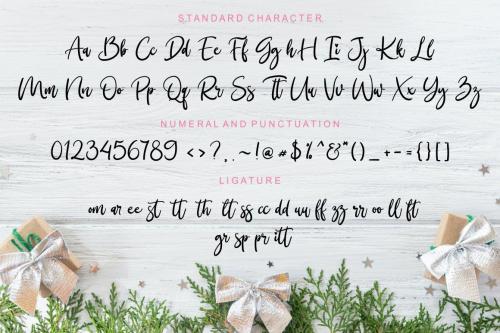 STANDARD CHARACTER
Aa Bb Cc Dd Ee Ff Gg hH Ii Jj Kk Ll
Mm Nn Oo Pp Qq Rr Ss Tt Uu Vv Ww Xx Yy Zz
NUMERAL AND PUNCTUATION
0123456789 <>?,.~!@#$%^&*()_+-={}[]
LIGATURE
om ar ee st tt th tt ss cc dd uu ff zz rr oo ll ft
gr sp pr itt